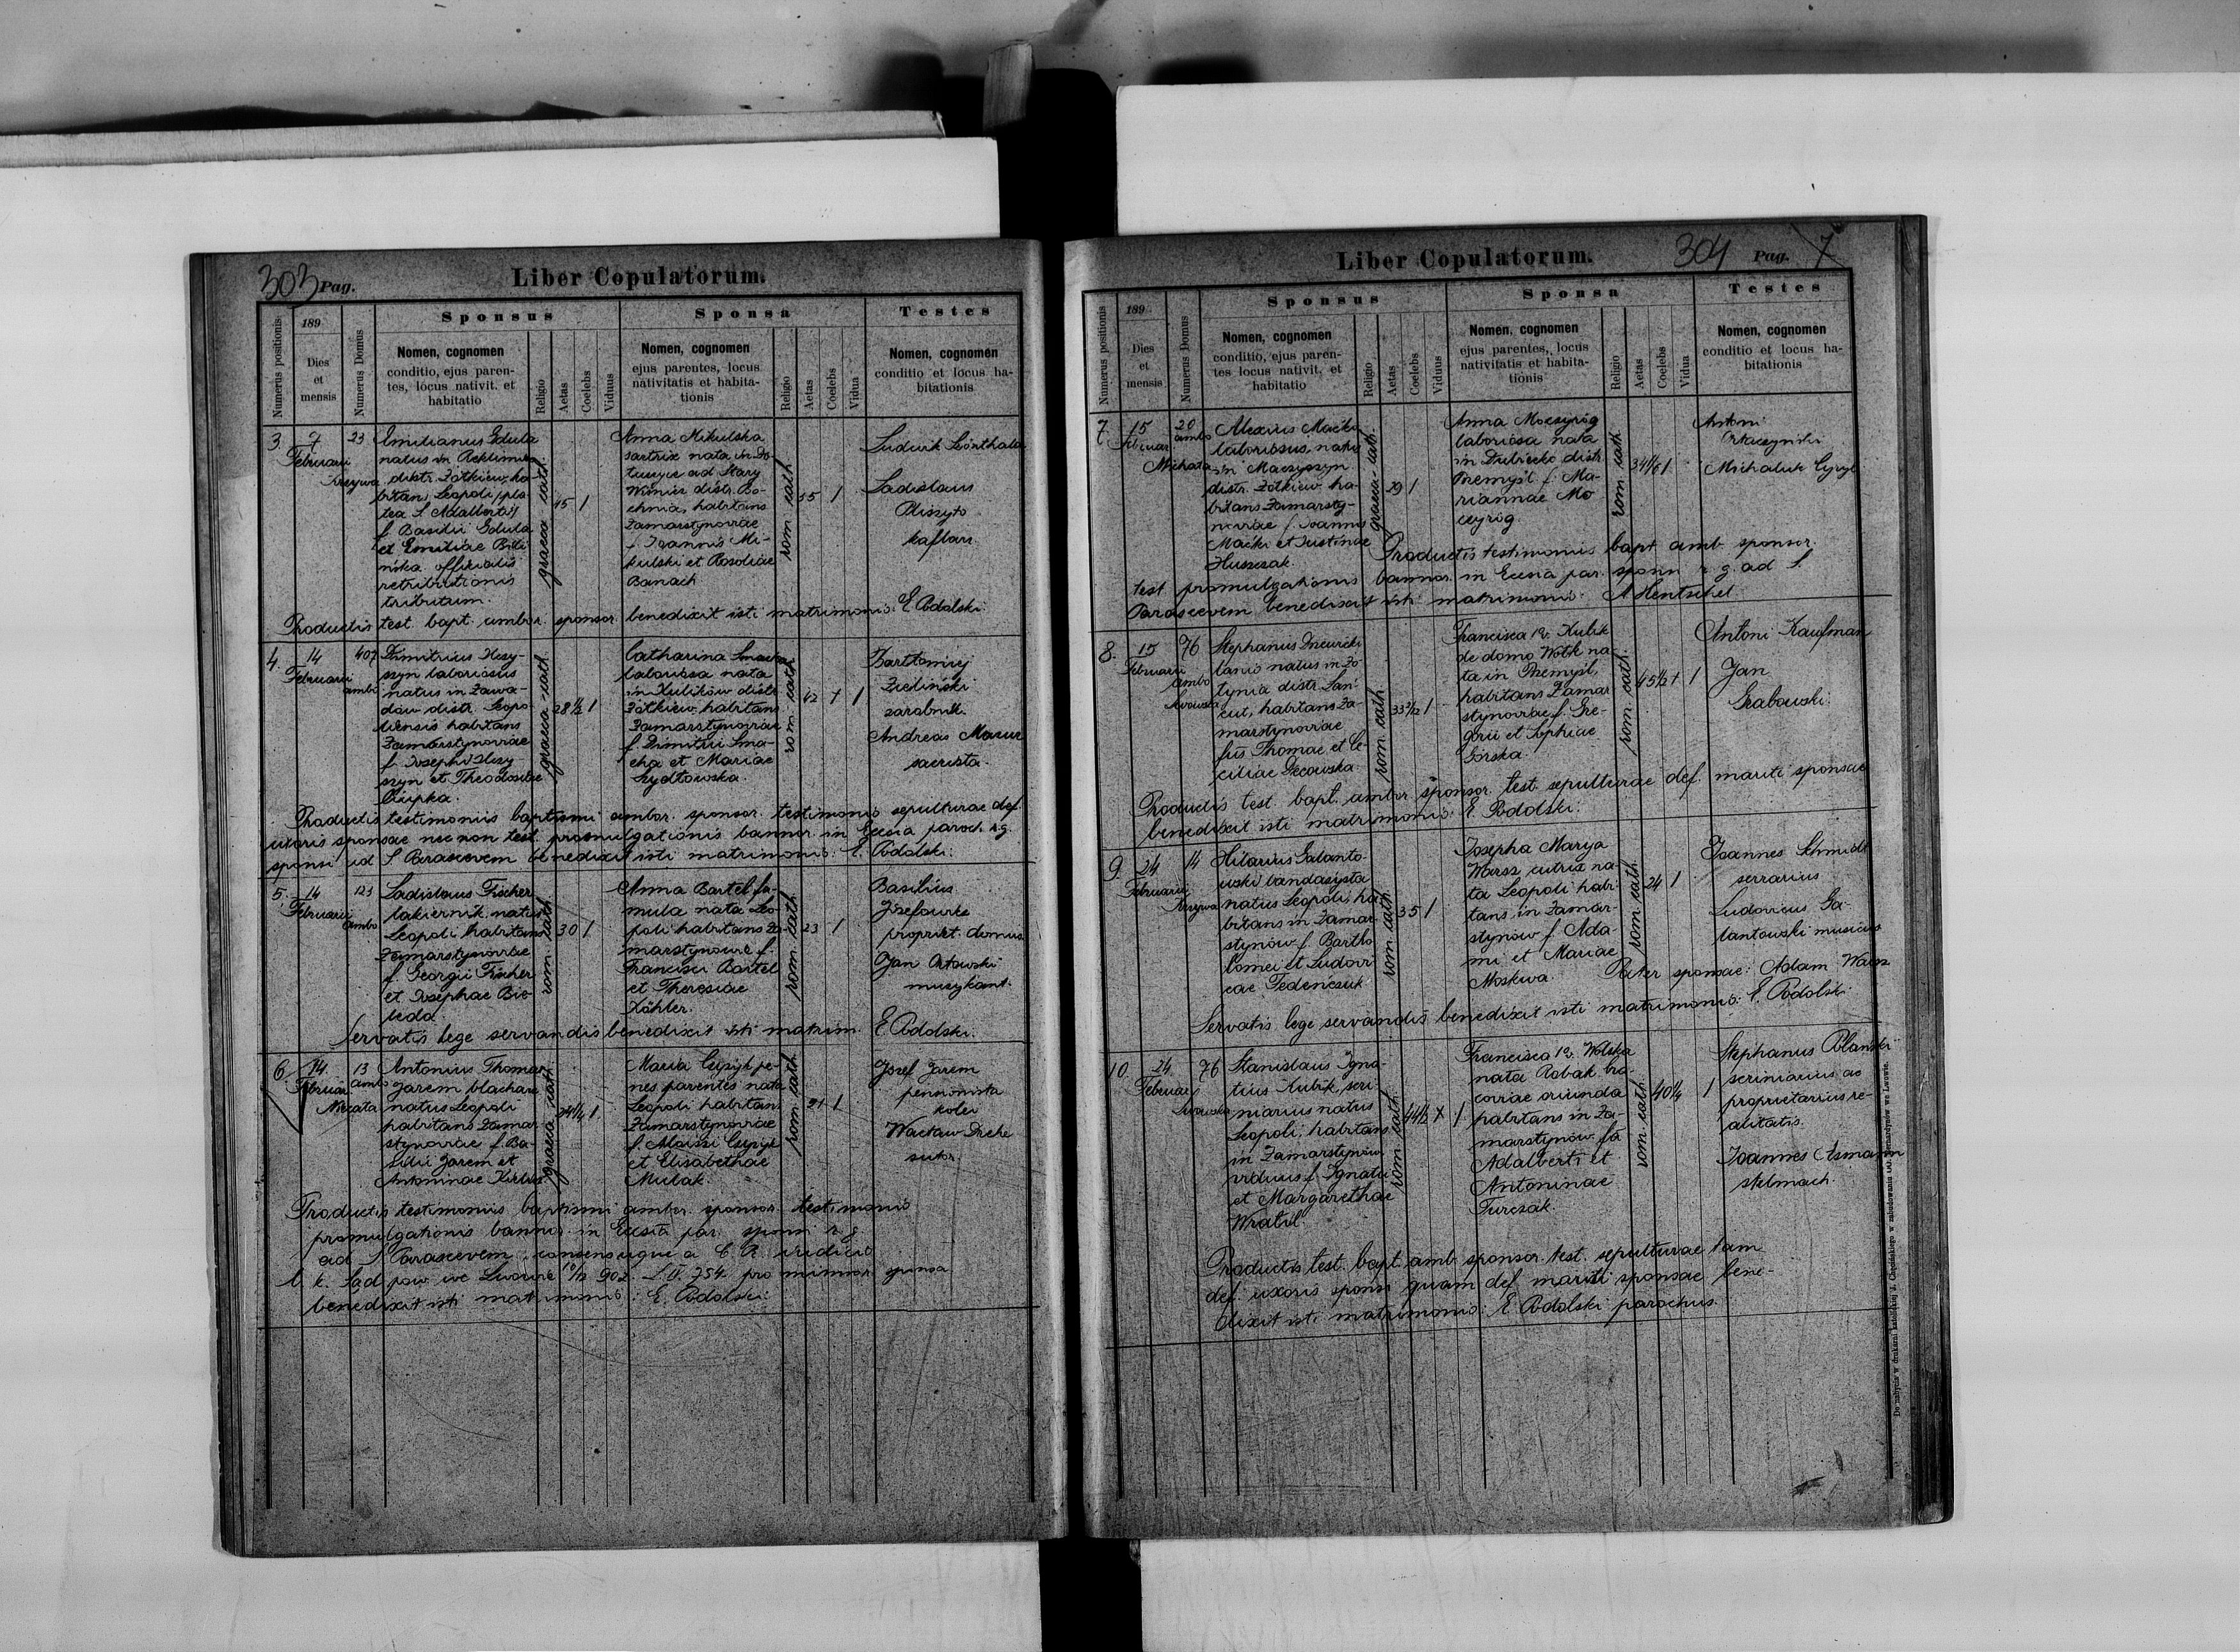 303 Pag.
Liber Copulatorum.
Numerus positionis
189
Dies
et
mensis
Numerus Domus
Sponsus
Nomen, cognomen
conditio, ejus paren-
tes, locus nativit. et
habitatio
Religio
Aetas
Coelebs
Viduus
Sponsa
Nomen, cognomen
ejus parentes, locus
nativitatis et habita-
tionis
Religio
Aetas
Coelebs
Vidua
Testes
Nomen, cognomen
conditio et locus ha-
bitationis
3. 7
Februarii
Krzywa
23
Emilianus Gdula
natus in
distr. Żółkiew, ha-
bitans Leopoli, pla-
tea S Adalberti
f. Basilii Gdula
et Emiliae
officialis
retributionis
tributum.
graeca cath.
45 1
Anna Mikulska
sartrix nata in
ad Stary
Wiśnicz distr. Bo-
chnia, habitans
Zamarstynoviae
f. Joannis Mi-
kulski et Rosaliae
Banach
rom. cath
35 1
Ludwik
Ladislaus
kaflarz
Productis test. bapt. ambor. sponsor. benedixit isti matrimonio: E. Podolski.
4. 14
Februarii
407
ambo
Dimitrius Hry-
szyn laboriosus
natus in Zawa-
dów distr. Leopo-
liensis habitans
Zamarstynoviae
f. Josephi Hry-
szyn et Theodosiae
Ciupka.
graeca cath
28 1/2 1
Catharina Smacha
laboriosa nata
in Kulików distr
Żółkiew, habitans
Zamarstynoviae
f. Dimitrii Sma-
cha et Mariae
Szydłowska.
rom. cath
42 + 1
Bartłomiej
Zieliński
zarobnik.
Andreas Mazur
sacrista.
Productis testimoniis baptismi ambor. sponsor. testimonio sepulturae def.
uxoris sponsae nec non test. promulgationis bannor. in Ecclesia paroch. r.g.
sponsi ad S Parascevem benedixit isti matrimonio: E. Podolski.
5. 14
Februarii
121
ambo
Ladislaus Fischer
lakiernik, natus
Leopoli habitans
Zamarstynoviae
f. Georgii Fischer
et Josephae Bie-
leda
rom. cath
30 1
Anna Bartel fa-
mula nata Leo-
poli habitans Za-
marstynoviae f.
Francisci Bartel
et Theresiae
Köhler.
rom. cath
23 1
Basilius
Józefowicz
propriet. domus
Jan Orłowski
muzykant.
Servatis lege servandis benedixit isti matrim. E. Podolski.
6. 14.
Februar
13
ambo
Antonius Thomas
Jarem blacharz
natus Leopoli
habitans Zamar-
stynoviae f. Ba-
silii Jarem et
Antoninae
graeca cath
24 1/4 1
Maria Czyżyk pe-
nes parentes nata
Leopoli habitans
Zamarstynoviae
f. Czyżyk
et Elisabethae
Mulak.
rom. cath
21 1
Józef Jarem
pensionista
kolei
Wacław
sutor.
Productis testimoniis baptismi ambor. sponsor. testimonio
promulgationis bannor. in Ecclesia par. sponsi r. g
ad S Parascevem, consensuque a C. R. iudicio
C. k. Sąd pow. we Lwowie 10/12 902. L. V. 754 pro minor. sponsa
benedixit isti matrimonio: E. Podolski.
Liber Copulatorum.
304 Pag. 7
Numerus positionis
189
Dies
et
mensis
Numerus Domus
Sponsus
Nomen, cognomen
conditio, ejus paren-
tes locus nativit. et
habitatio
Religio
Aetas
Coelebs
Viduus
Sponsa
Nomen, cognomen
ejus parentes, locus
nativitatis et habita-
tionis
Religio
Aetas
Coelebs
Vidua
Testes
Nomen, cognomen
conditio et locus ha-
bitationis
7. 15
Februar
20
ambo
Alexius Maćki
laboriosus, natus
in Maczyszyn
distr. Żółkiew ha-
bitans Zamarsty-
noviae f. Joannis
Maćki et Justinae
Huszczak.
graeca-cath.
29 1
Anna Moczyróg
laboriosa nata
in Dubiecko distr
Przemyśl f. Ma-
riannae Mo-
czyróg.
rom. cath
34 1
Antoni
Michaluk Czyżyk
Productis testimoniis bapt. amb. sponsor.
test promulgationis bannor. in Ecclesia par. sponsi r. g. ad S.
Parascevem benedixit isti matrimonio: A Hentschel.
8. 15
Februarii
76
ambo
Lwowska
Stephanus
lanio natus in Żo-
łynia distr. Łań-
cut, habitans Za-
marstynoviae
fius Thomae et Ce-
ciliae
rom. cath
33 1
Francisca 1v. Kubik
de domo Wołk na-
ta in Przemyśl,
habitans Zamar-
stynoviae f. Gre-
gorii et Sophiae
Górska.
rom. cath.
45 1/2 + 1
Antoni Kaufman
Jan
Grabowski.
Productis test. bapt. ambor. sponsor. test. sepulturae def. mariti sponsae
benedixit isti matrimonio: E. Podolski.
9. 24
Februarii
Krzywa
14
Hilarius Galanto-
wski bandażysta
natus Leopoli, ha-
bitans in Zamar-
stynów f. Bartho-
lomei et Ludovi-
cae Fedeńczuk
rom. cath.
35 1
Josepha Marya
Warsz sutrix na-
ta Leopoli habi-
tans in Zamar-
stynów f. Ada-
mi et Mariae
Moskwa.
rom. cath.
24 1
Joannes Schmidt
serrarius
Ludovicus Ga-
lantowski musicus
Pater sponsae: Adam Warsz
Servatis lege servandis benedixit isti matrimonio: E. Podolski.
10. 24.
Februar
Lwowska
76
Stanislaus Igna-
tius Kubik, scri-
niarius natus
Leopoli, habitans
in Zamarstynów
viduus f. Ignatii
et Margarethae
Wrabil.
rom. cath
44 1/2 + 1
Francisca 1v. Wolska
nata Robak Cra-
coviae oriunda
habitans in Za-
marstynów. fa
Adalberti et
Antoninae
Furczak.
rom. cath
40 1/4 1
Stephanus Polański
scriniarius ac
proprietarius re-
alitatis.
Joannes Asmann
stelmach.
Productis test. bapt. amb. sponsor. test. sepulturae tam
def. uxoris sponsi quam def. mariti sponsae bene-
dixit isti matrimonio: E. Podolski parochus.